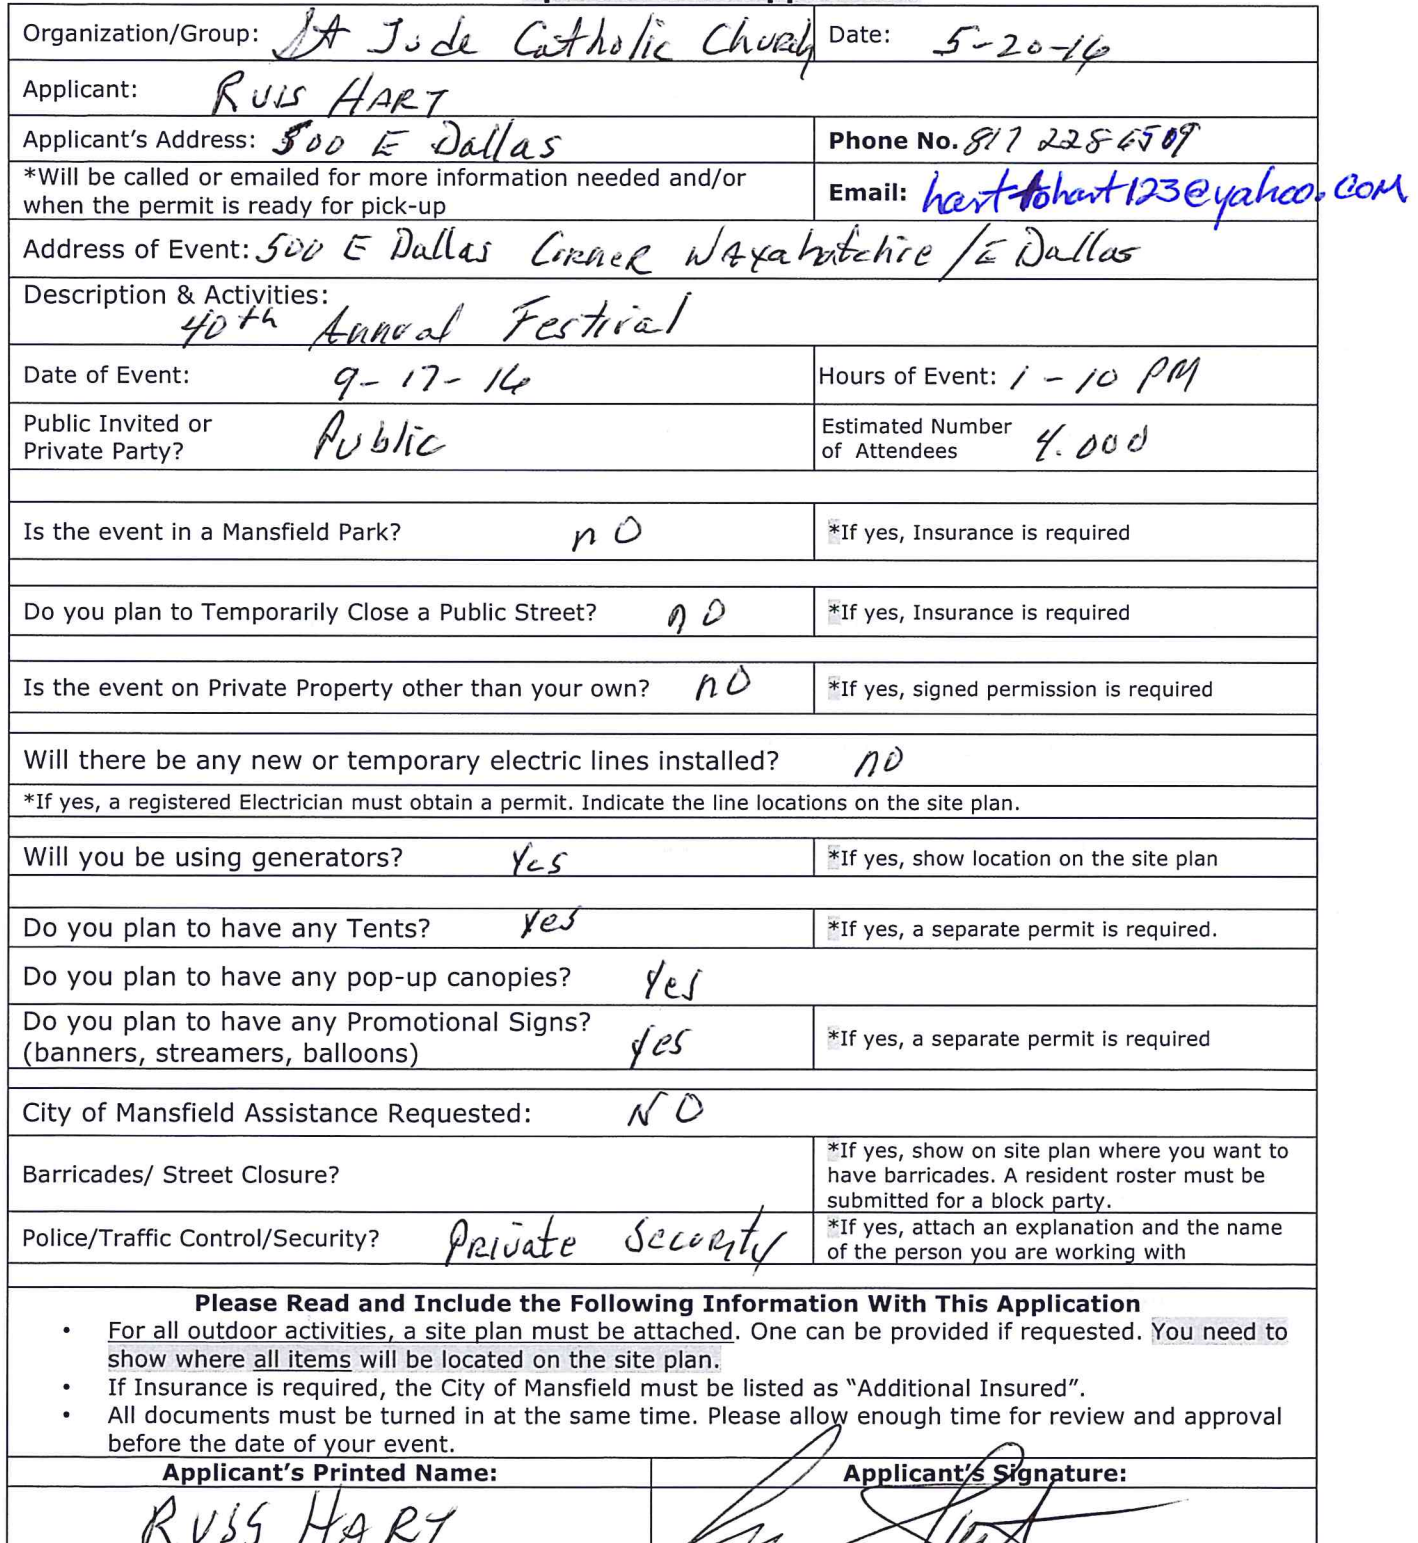 Organization/Group: St Jude Catholic Church Date: 5-20-16
Applicant: RUSS HART
Applicant's Address: 500 E Dallas Phone No. 817 228 6509
*Will be called or emailed for more information needed and/or
when the permit is ready for pick-up
Email: hart-tohart123@yahoo.com
Address of Event: 500 E Dallas Corner Waxahatchie / E Dallas
Description & Activities:
40th Annual Festival
Date of Event: 9-17-16 Hours of Event: 1 - 10 PM
Public Invited or
Private Party? Public
Estimated Number
of Attendees 4.000
Is the event in a Mansfield Park? no *If yes, Insurance is required
Do you plan to Temporarily Close a Public Street? no *If yes, Insurance is required
Is the event on Private Property other than your own? no *If yes, signed permission is required
Will there be any new or temporary electric lines installed? no
*If yes, a registered Electrician must obtain a permit. Indicate the line locations on the site plan.
Will you be using generators? Yes *If yes, show location on the site plan
Do you plan to have any Tents? Yes *If yes, a separate permit is required.
Do you plan to have any pop-up canopies? Yes
Do you plan to have any Promotional Signs?
(banners, streamers, balloons) yes *If yes, a separate permit is required
City of Mansfield Assistance Requested: NO
Barricades/ Street Closure?
*If yes, show on site plan where you want to
have barricades. A resident roster must be
submitted for a block party.
Police/Traffic Control/Security? Private Security
*If yes, attach an explanation and the name
of the person you are working with
Please Read and Include the Following Information With This Application
• For all outdoor activities, a site plan must be attached. One can be provided if requested. You need to
show where all items will be located on the site plan.
• If Insurance is required, the City of Mansfield must be listed as “Additional Insured”.
• All documents must be turned in at the same time. Please allow enough time for review and approval
before the date of your event.
Applicant's Printed Name: Applicant's Signature:
RUSS HART